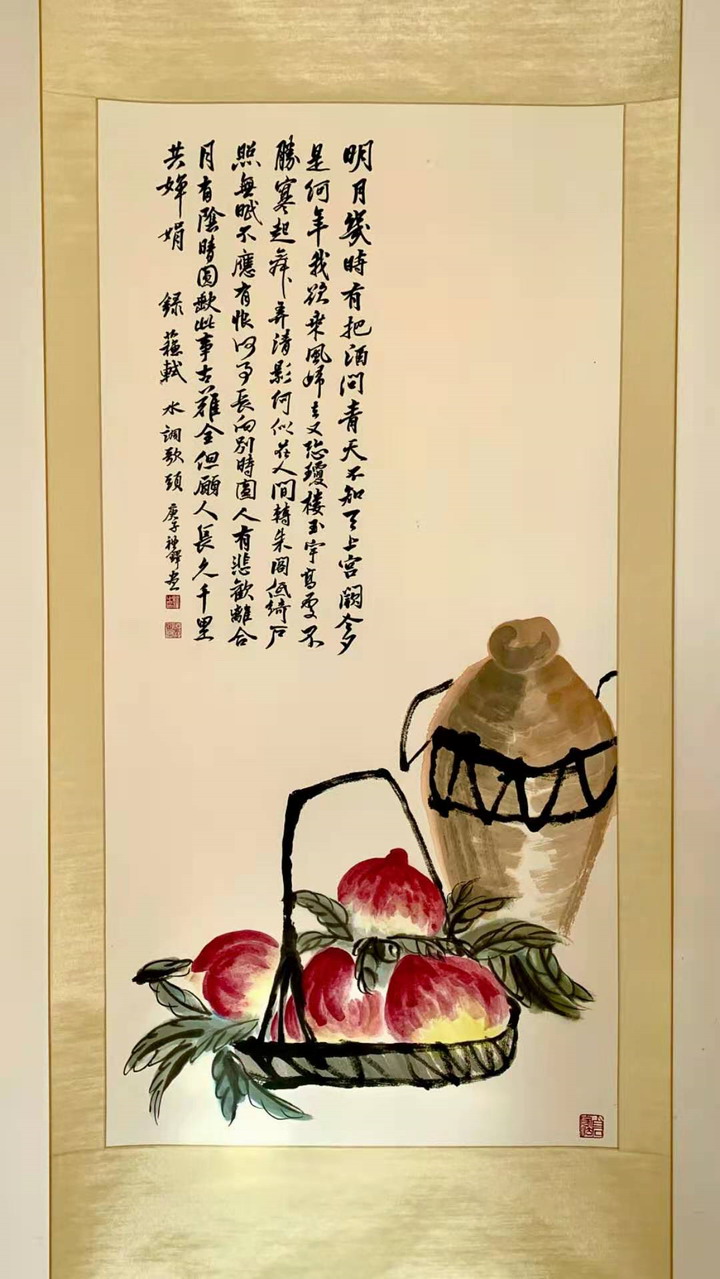 明月幾時有把酒问青天不知天上宫闕今夕
是何年我欲乘風歸去又恐瓊楼玉宇高處不
勝寒起舞弄清影何似在人间轉朱阁低绮户
照無眠不應有恨何事長向别時圆人有悲歡離合
月有陰晴圆缺此事古難全但願人長久千里
共婵娟 録蘇軾水調歌頭 庚子